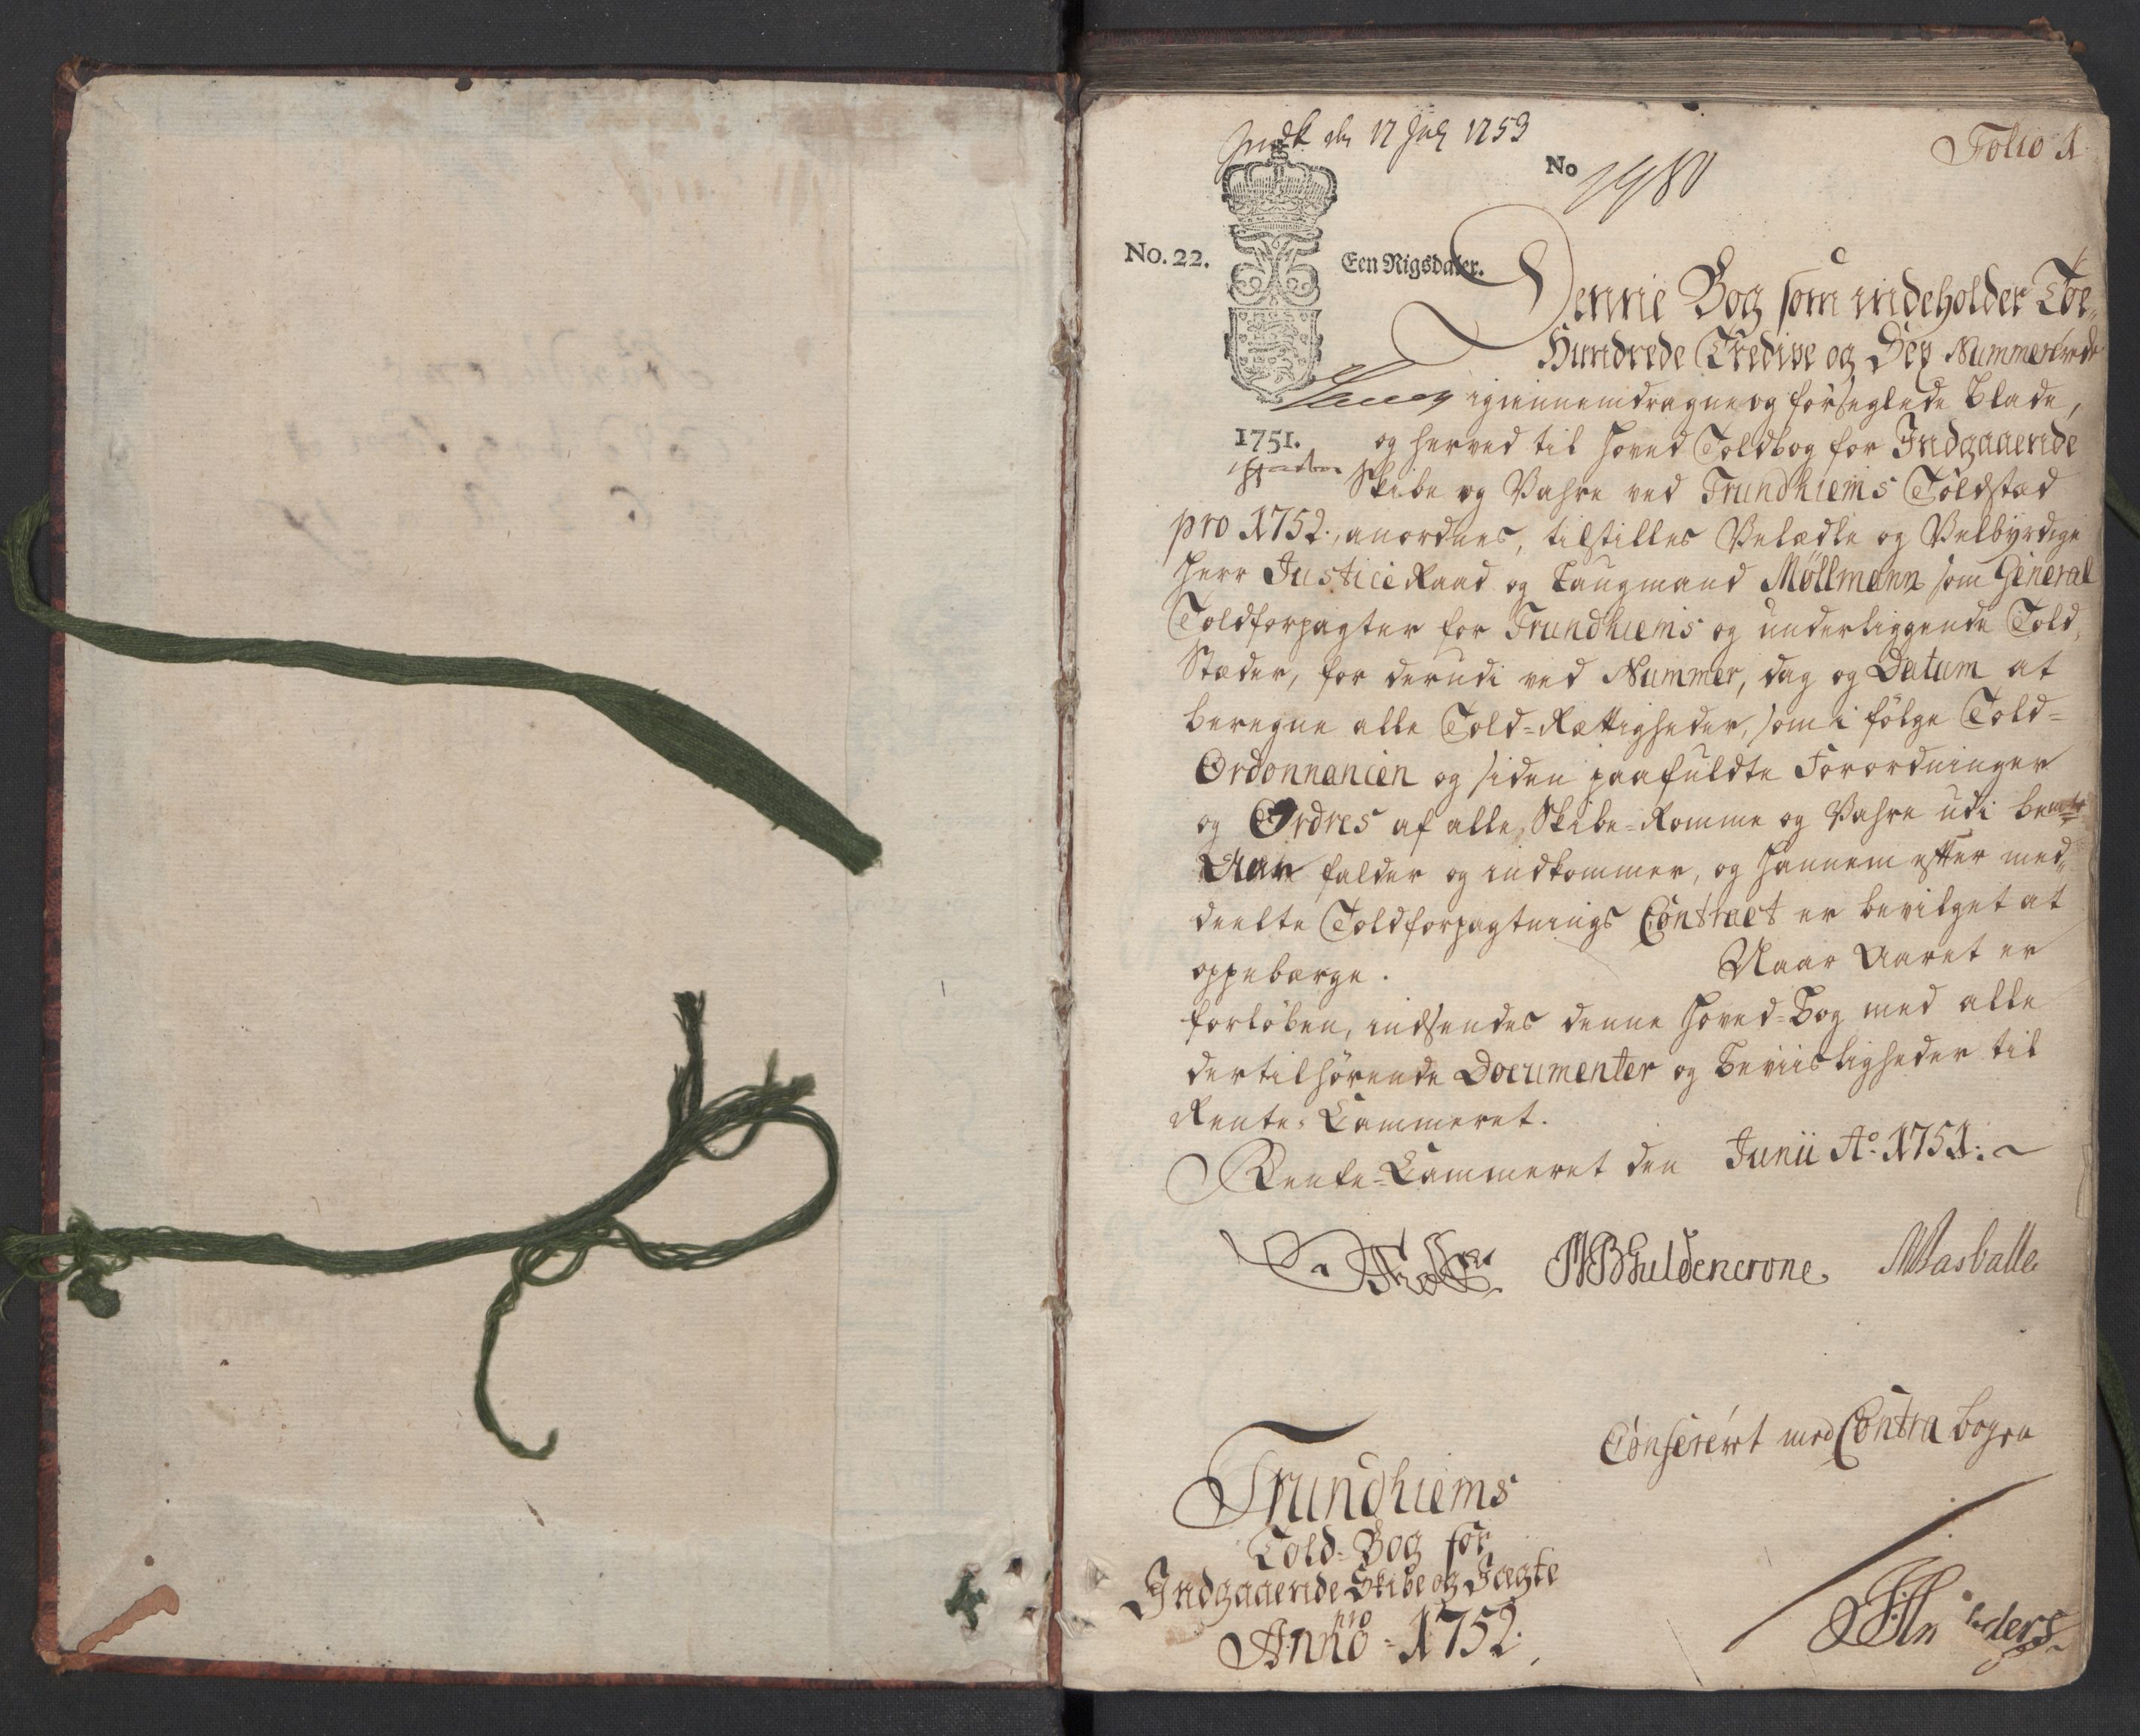 Indk den 17 July 1753
Folio 1
No
1980
No. 22.
Een Rigsdaler.
Denne Bog som indeholder Toe
Hundrede Tredive og Sex Nummererede
igiennemdragne og forseglede Blade,
1751.
og herved til Hoved Toldbog for Indgaaende
Skibe og Vahre ved Trundhiems Toldstæd
pro 1752. anordnes, tilstilles Velædle og Velbyrdige
Herr Justice Raad og Laugmand Möllmann som General
Toldforpagter for Trundhiems og underliggende Told
Stæder, for derudi ved Nummer, dag og Datum at
beregne alle Told-Rettigheder, som i fölge Told-
Ordonnancen og siden paafuldte Forordninger
og Ordres af alle Skibe-Romme og Vahre udi bemte
Aar falder og indkommer, og hannem efter med
deelte Toldforpagtnings Contract er bevilget at
oppebærge. Naar Aaret er
forlöben, indsendes denne Hoved-Bog med alle
dertilhörende Documenter og Beviisligheder til
Rente-Cammeret.
Rente-Cammeret den Junii Ao. 1751.
Guldencrone
Conferéret med Contra bogen
Trundhiems
Told-Bog for
Indgaaende Skibe og Jægte
pro
Anno 1752.